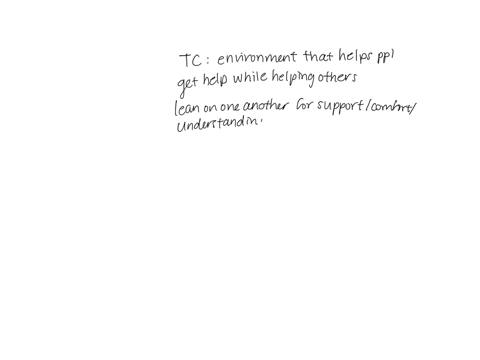 TC: environment that helps ppl
get help while helping others
lean on one another for support/comfort/
understandin